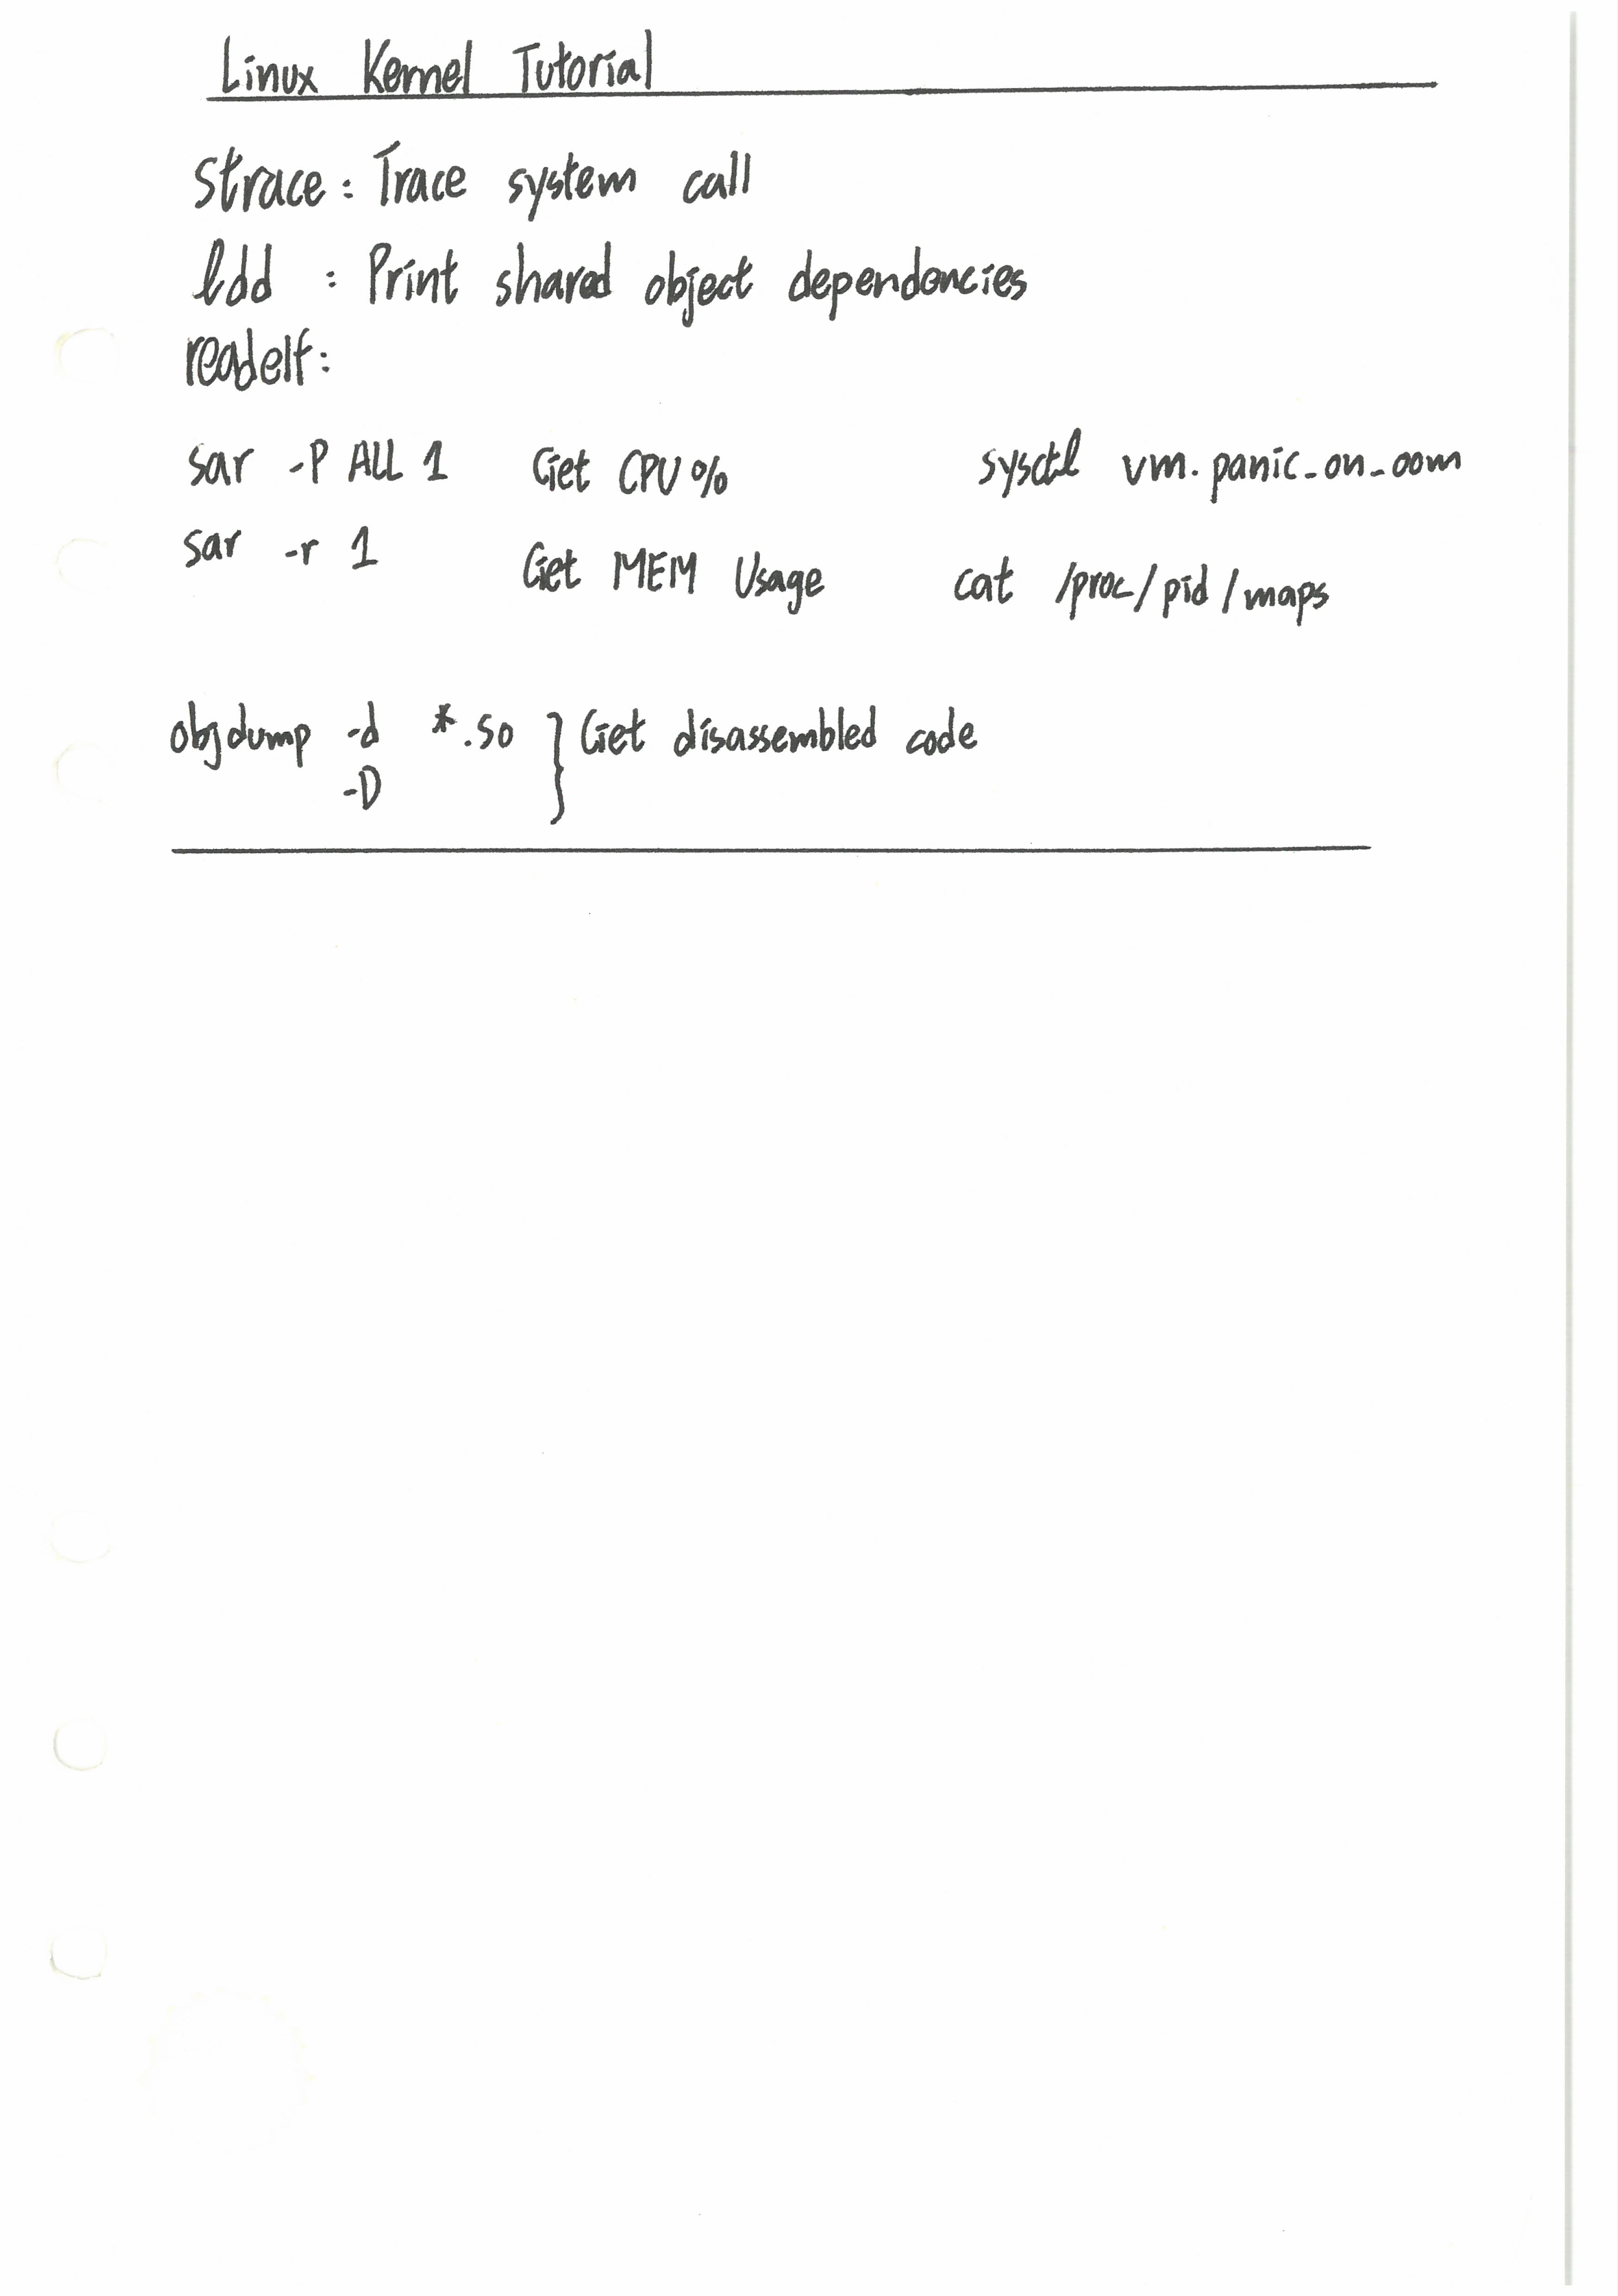 Linux Kernel Tutorial
strace : Trace system call
ldd : Print shared object dependencies
readelf:
sar -P ALL 1 Get CPU% sysctl vm.panic_on_oom
sar -r 1 Get MEM Usage cat /proc/pid/maps
objdump -d *.so } Get disassembled code
-D